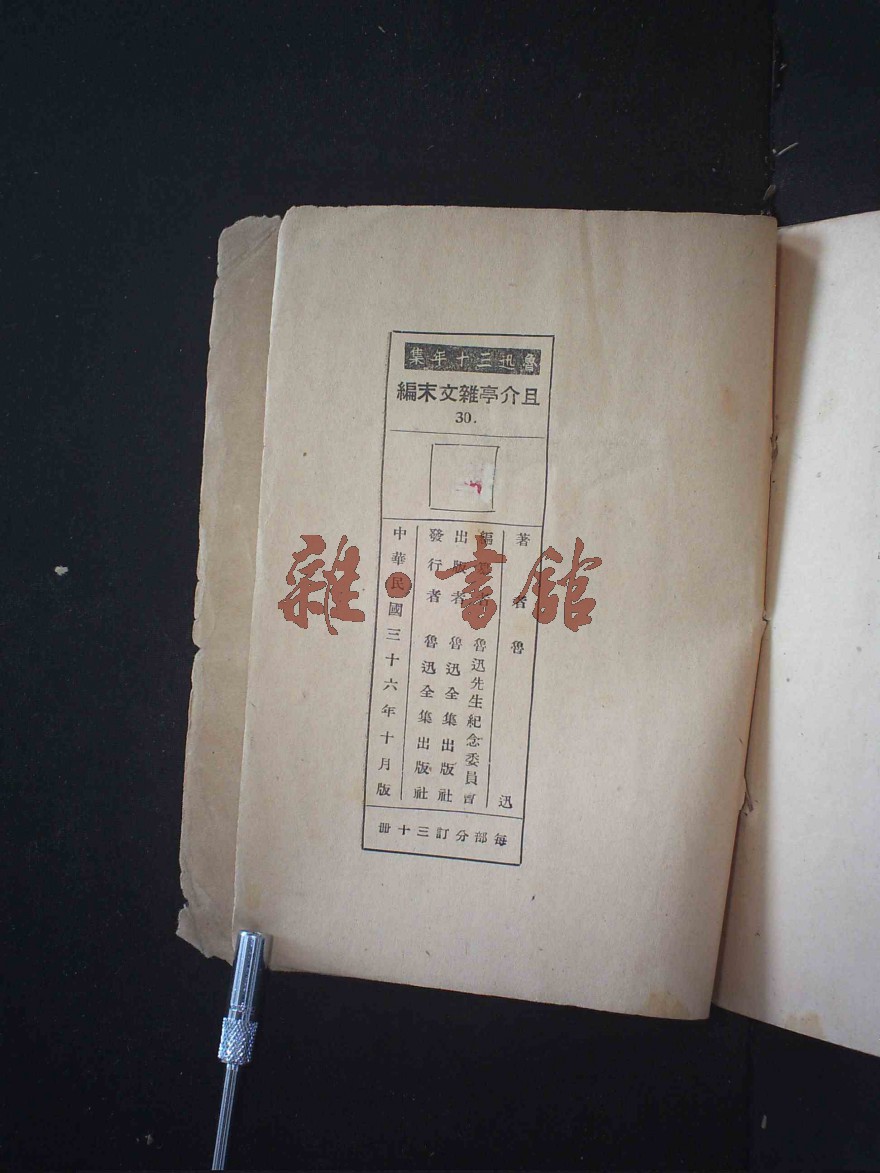 魯迅三十年集
且介亭雜文末編
30.
著者 魯迅
編纂者 魯迅先生紀念委員會
出版者 魯迅全集出版社
發行者 魯迅全集出版社
中華民國三十六年十月版
每部分訂三十冊
雜·書館